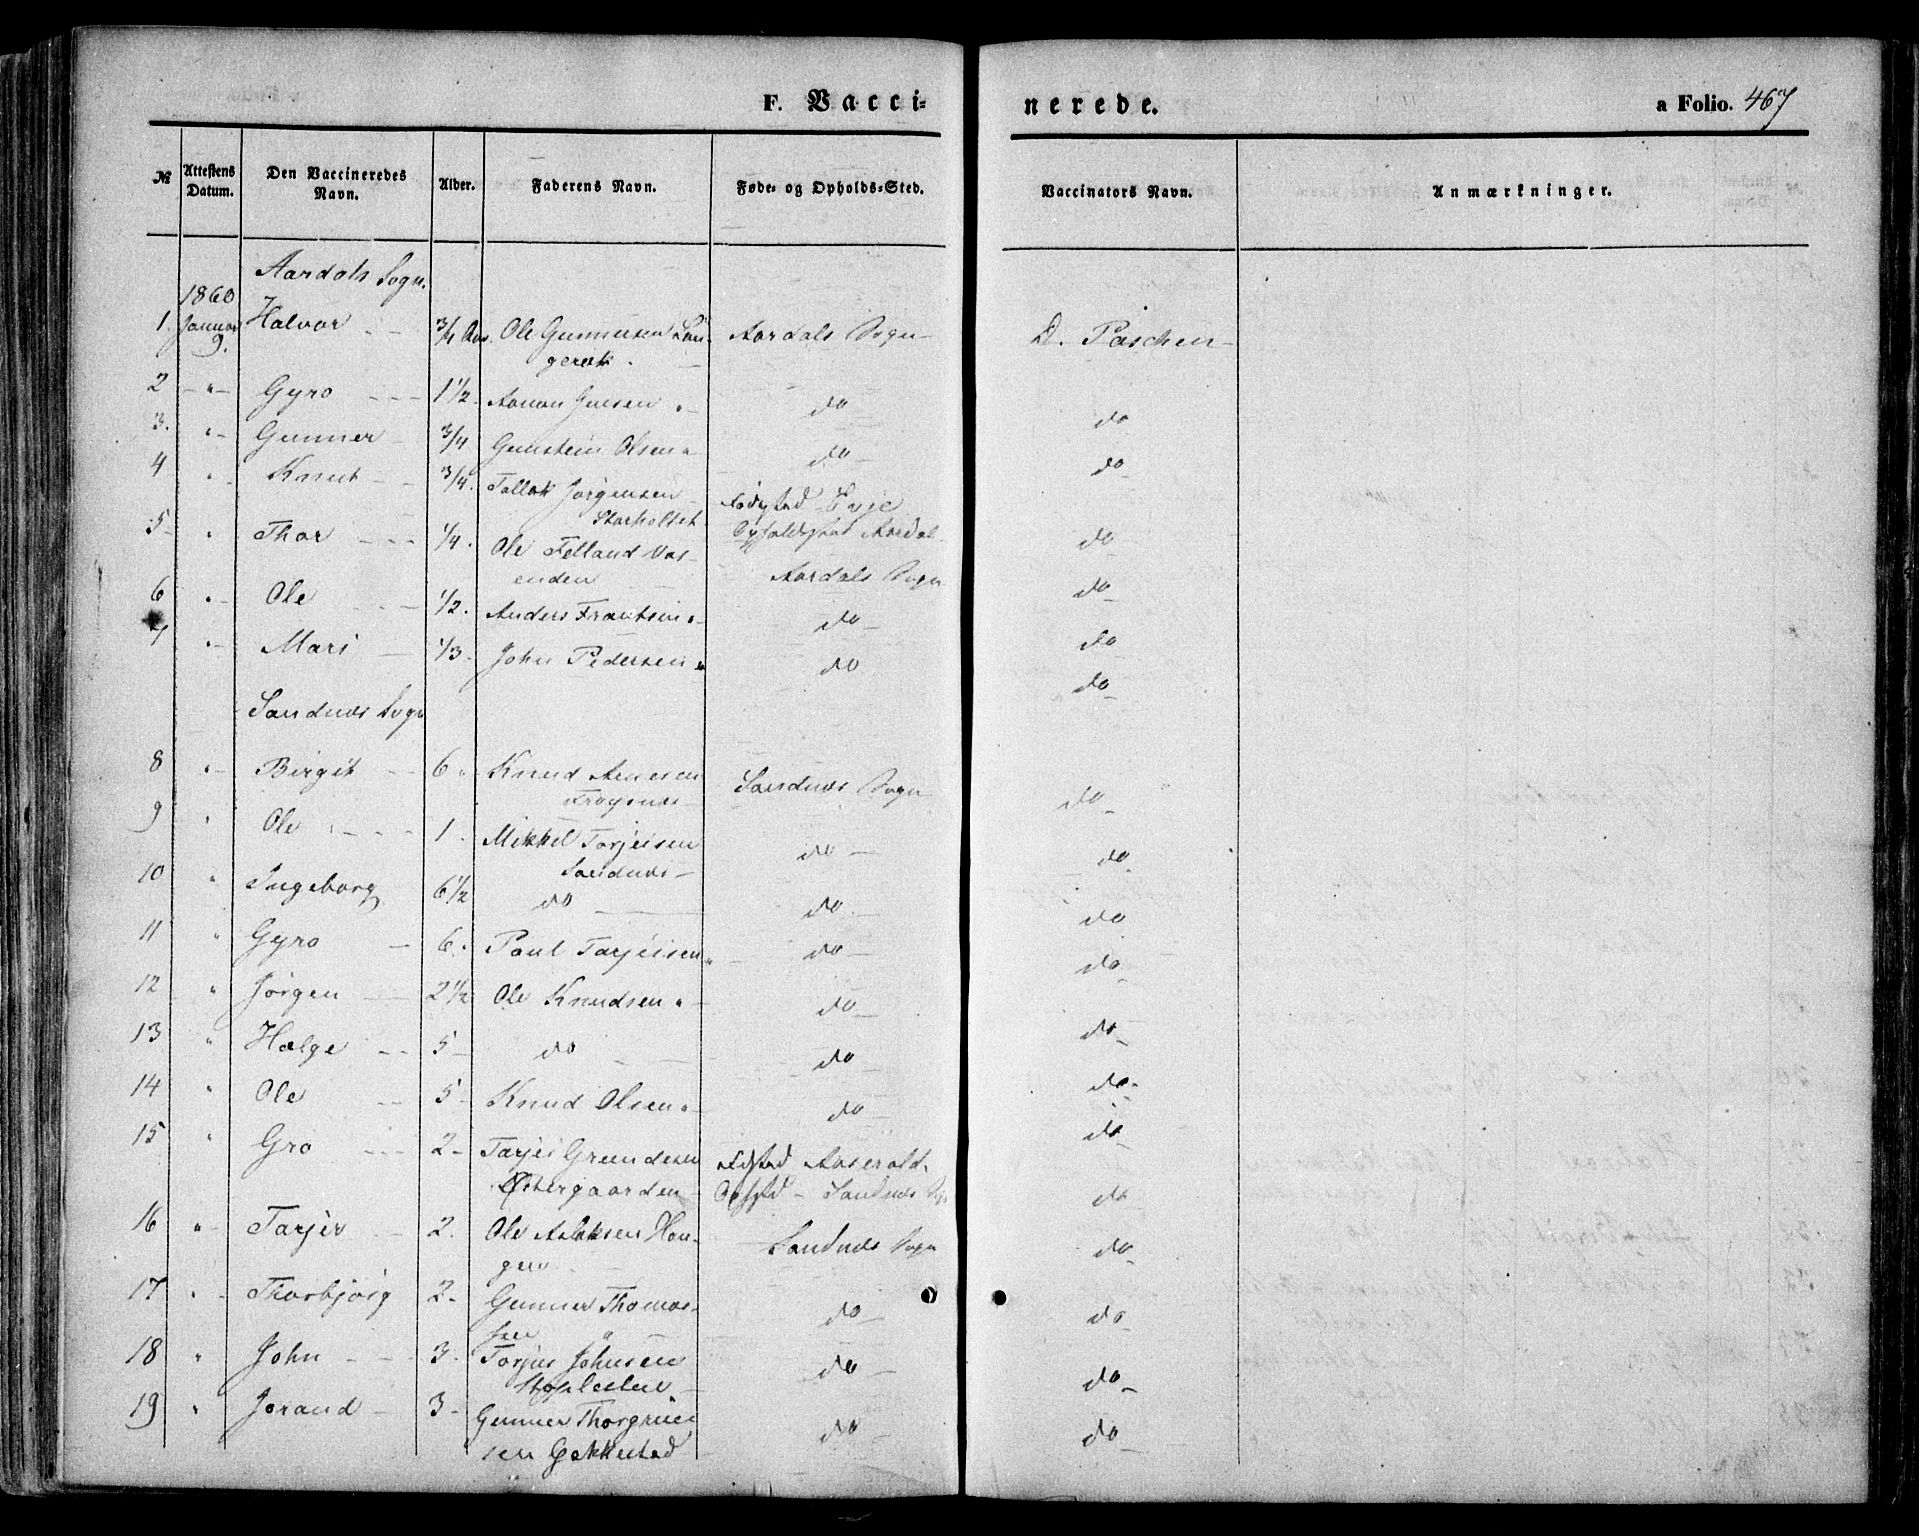 F. Vacci-
nerede.
a Folio. 467
№
Attestens Datum.
Den Vaccineredes Navn.
Alder.
Faderens Navn.
Føde- og Opholds-Sted.
Vaccinators Navn.
Anmærkninger.
Aardals Sogn.
1860
1. Januar 9. Halvor 3/4 Aar. Ole Gunnersen Lan- Aardals Sogn D. Paschen
gerak.
2 " Gyro 1 1/2 Aanon Jensen " do do
3. " Gunner 3/4 Gunstein Olsen " do do
4 " Knut 3/4. Tallak Jørgensen Fødested Evje do
Storholtet Opholdsted Aardal
5 " Thor 1/4. Ole Felland Vas- Aardals Sogn do
enden
6 " Ole 1/2. Anders Frantsen " do do
7 " Mari 1/3 John Pedersen " do do
Sandnæs Sogn
8 " Birgit 6 " Knud Arnesen Sandnæs Sogn do
Frøysnæs
9 " Ole 1. Mikkel Torjeisen do do
Sandnæs
10 " Ingeborg 6 1/2 do do do
11 " Gyro 6. Poul Tarjeisen " do do
12 " Jørgen 2 1/2 Ole Knudsen " do do
13 " Hælge 5 do do do
14 " Ole 5 Knud Olsen " do do
15 " Gro 2 Tarjei Grundesen Fdsted Aaserald. do
Østergaarden Ophstd Sandnæs Sogn
16 " Tarjer 2. Ole Aslaksen Hau- Sandnæs Sogn do
gen
17 " Thorbjørg 2 Gunner Thomas- do do
sen "
18 " John 3. Torjus Johnsen do do
19 " Jorand 3 Gunner Thorgrim do do
sen